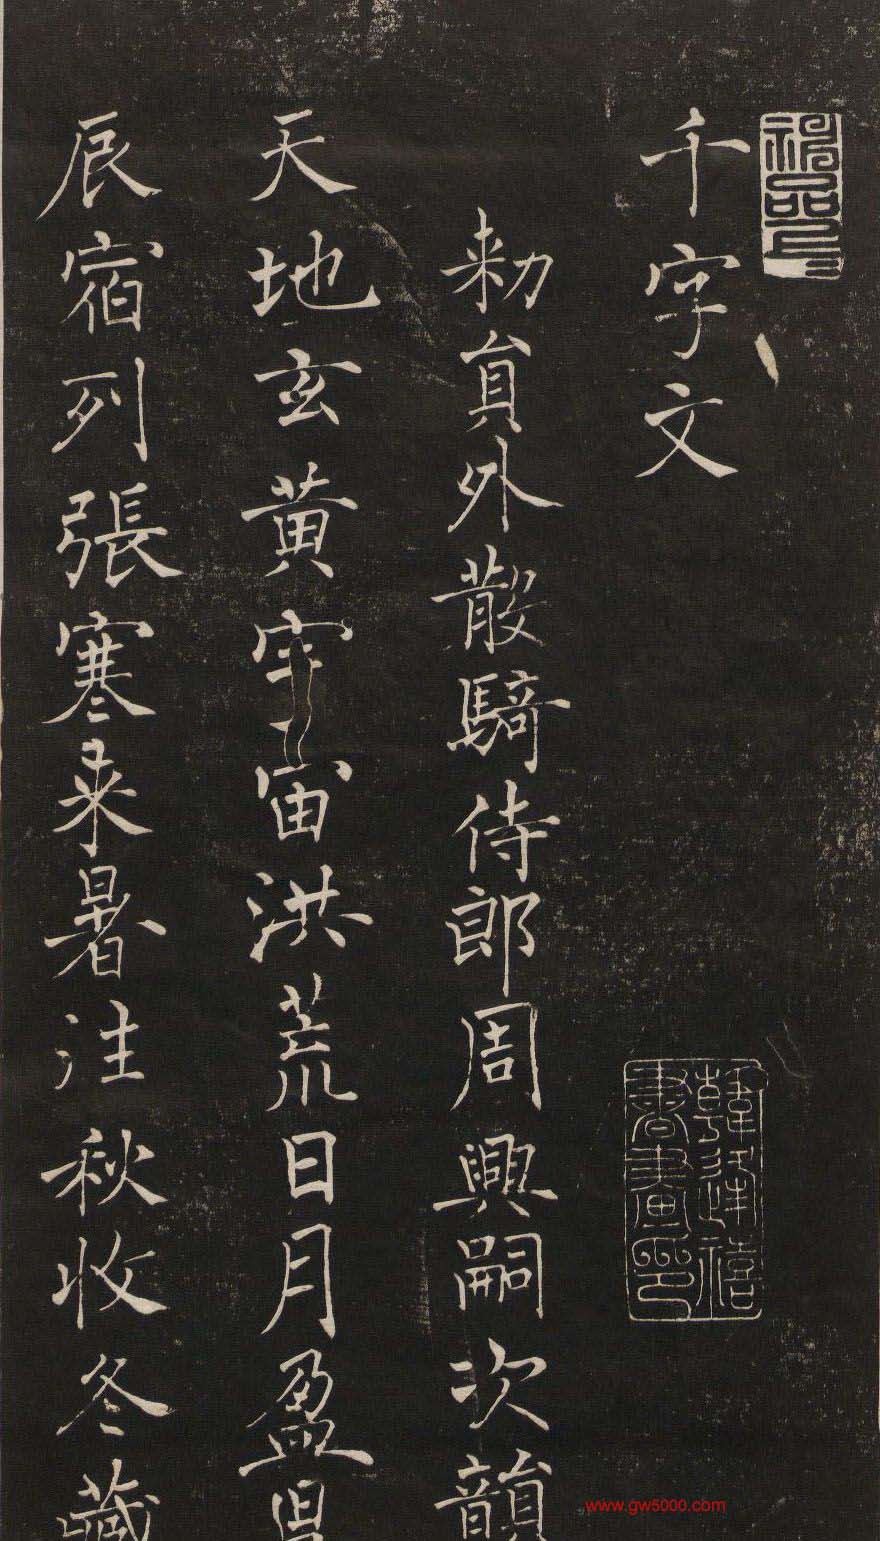 千字文
韓逢禧書畫印
勑員外散騎侍郎周興嗣次韻
天地玄黄宇宙洪荒日月盈昃
辰宿列張寒来暑往秋收冬藏
www.gw5000.com